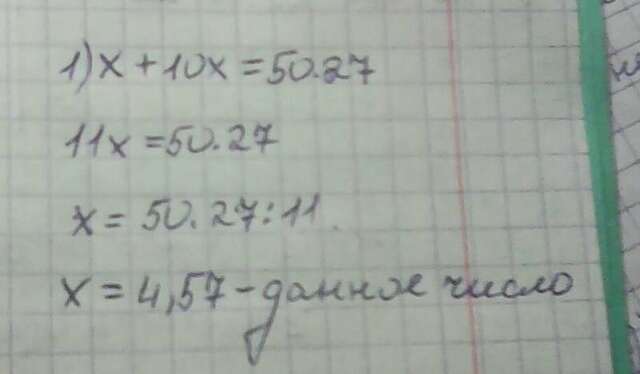 1) x + 10x = 50.27
11x = 50.27
x = 50.27:11
x = 4,57 - данное число